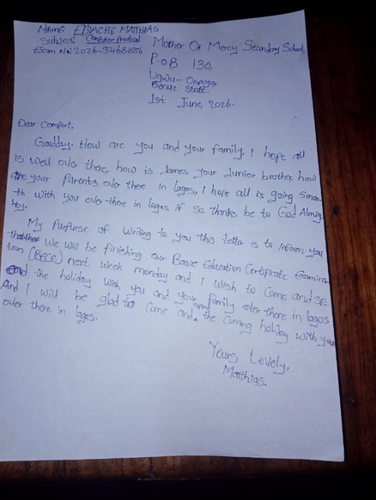 Name: EJIACHE MATTHIAS
Subject: Computer Practical
Exam No: 2026-
Mother Of Mercy Secondary School,
P.O.B 130
Ugwu-
Benue State
1st June, 2026.
Dear Comfort,
Goodday. How are you and your family, I hope all
is well over there, how is James your Junior brother, how
are your Parents over there in lagos, I hope all is going Smoo-
th with you over there in lagos, if so thanks be to God Almig
hty.
My Purpose of writing to you this letter is to inform you
that we will be finishing our Basic Education Certificate Examina-
tion (BECE) next week monday and I wish to Come and spe
end the holiday with you and your family over there in lagos
And I will be glad to come and spend the coming holiday with you
over there in lagos.
Yours Lovely,
Matthias.